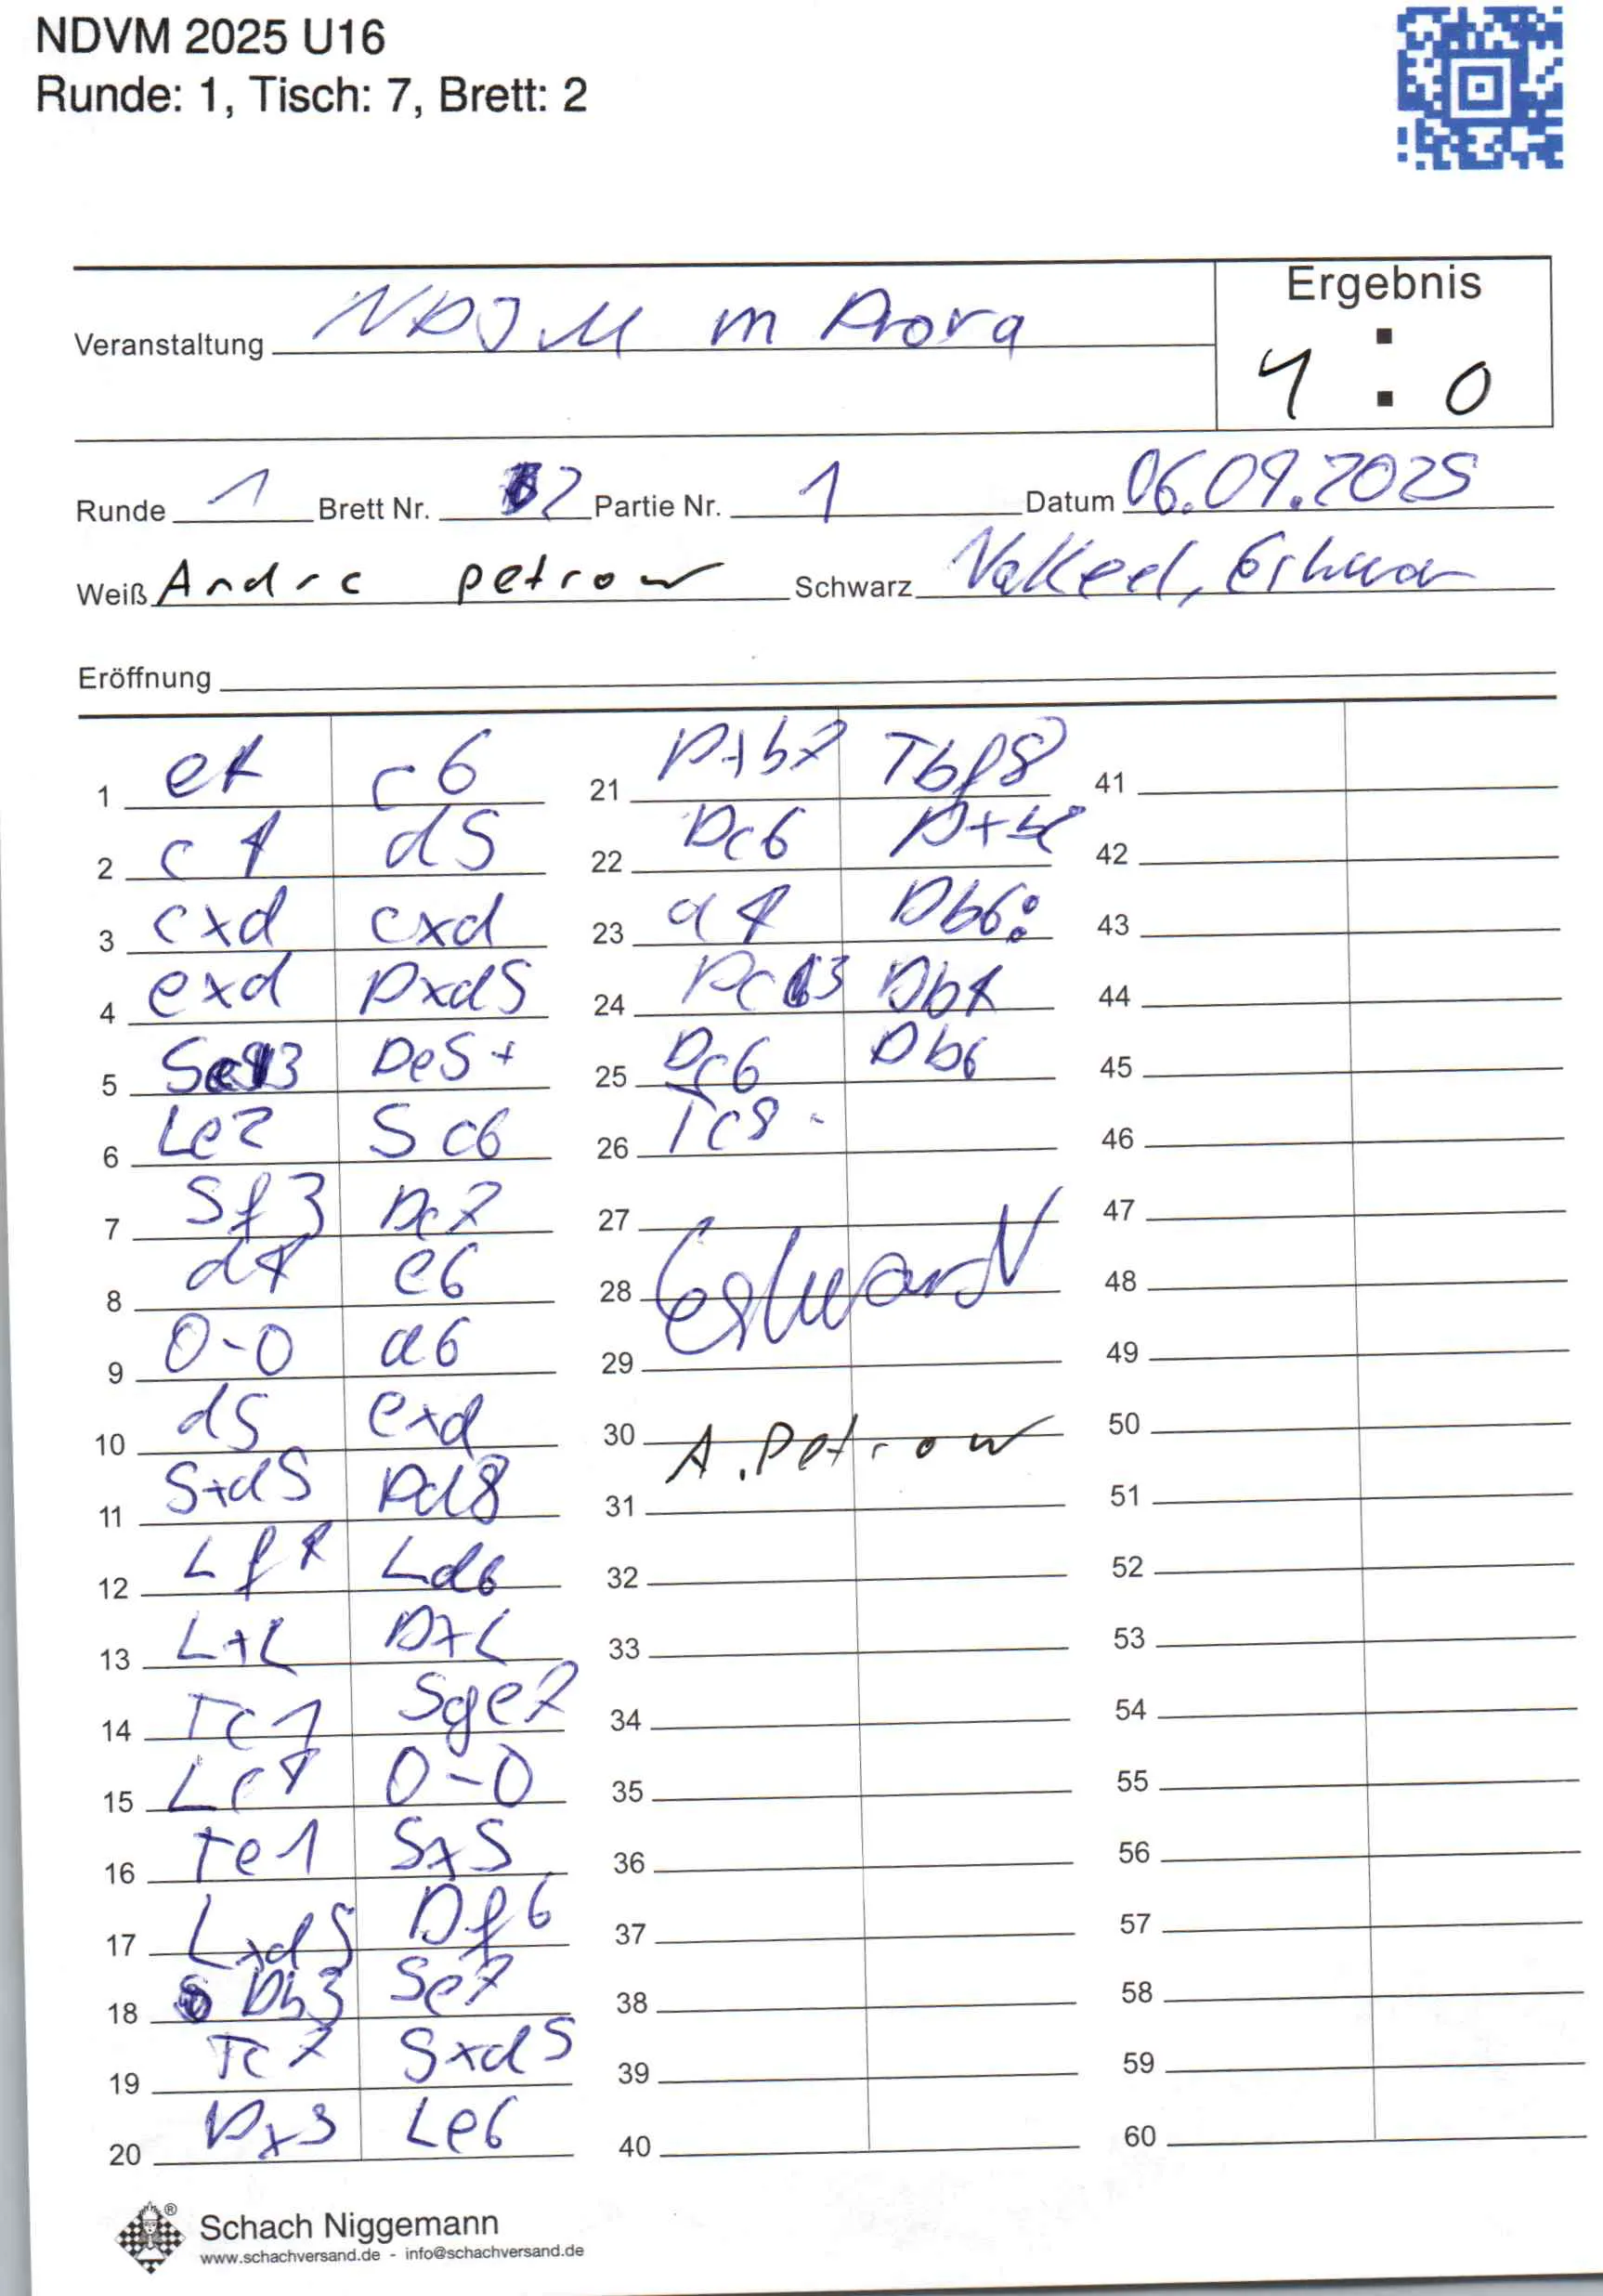 NDVM 2025 U16
Runde: 1, Tisch: 7, Brett: 2
Ergebnis
Veranstaltung NDJM in Prora
1 : 0
Runde 1 Brett Nr. 2 Partie Nr. 1 Datum 06.09.2025
Weiß Andre Petrow Schwarz
Eröffnung
1 e4 c6
2 c4 d5
3 cxd cxd
4 exd Dxd5
5 Sc3 De5+
6 Le2 Sc6
7 Sf3 Dc7
8 d4 e6
9 0-0 a6
10 d5 exd
11 Sxd5 Dd8
12 Lf4 Ld6
13 LxL DxL
14 Tc1 Sge7
15 Lc4 0-0
16 Te1 SxS
17 Lxd5 Df6
18 Db3 Se7
19 Tc7 Sxd5
20 DxS Le6
21 Dxb7 Tbf8
22 Dc6
23 a4 Db6:
24 Dc3 Db4
25 Dc6 Db6
26 Tc8
27
28
29
30 A. Petrow
31
32
33
34
35
36
37
38
39
40
41
42
43
44
45
46
47
48
49
50
51
52
53
54
55
56
57
58
59
60
Schach Niggemann
www.schachversand.de - info@schachversand.de